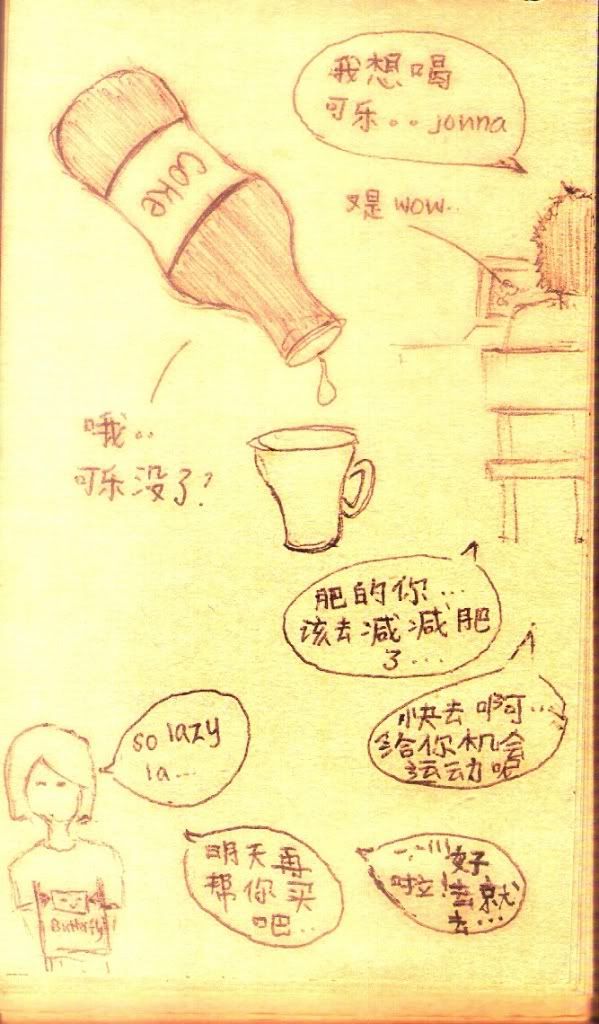 我想喝
可乐。。jonna
Coke
又是 wow..
哦..
可乐没了?
肥的你...
该去减减肥
了...
so lazy
la...
快去啊...
给你机会
运动吧
明天再
帮你买
吧...
好
啦!去就
去...
Butterfly